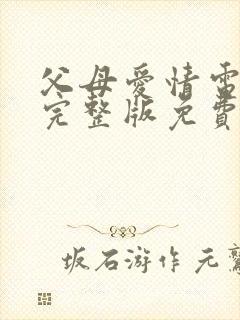 父母爱情電
完整版免費
坂石游作元